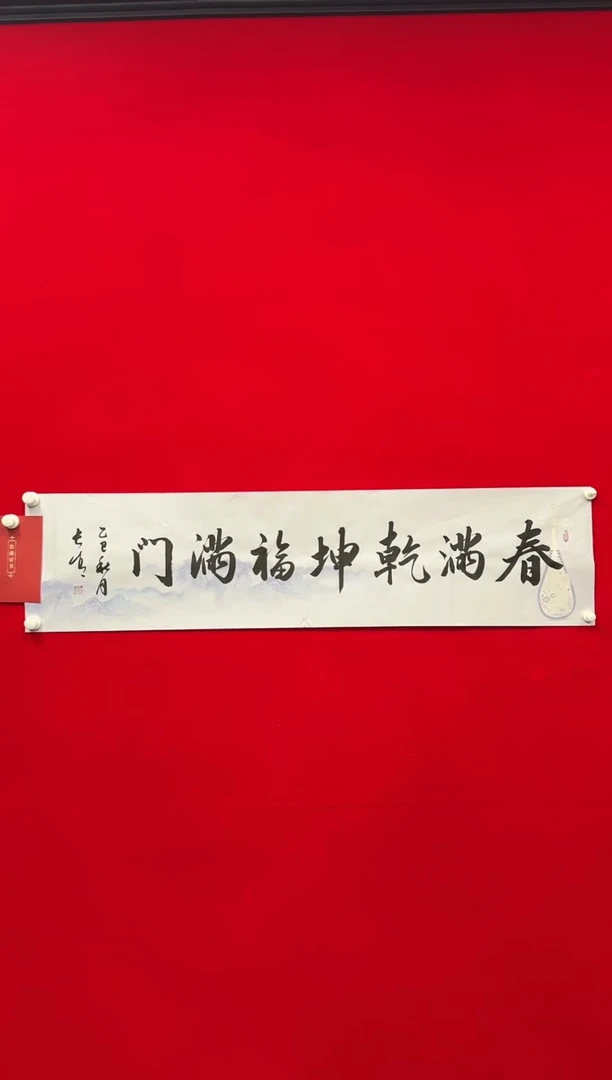 春满乾坤福满门
乙巳秋月